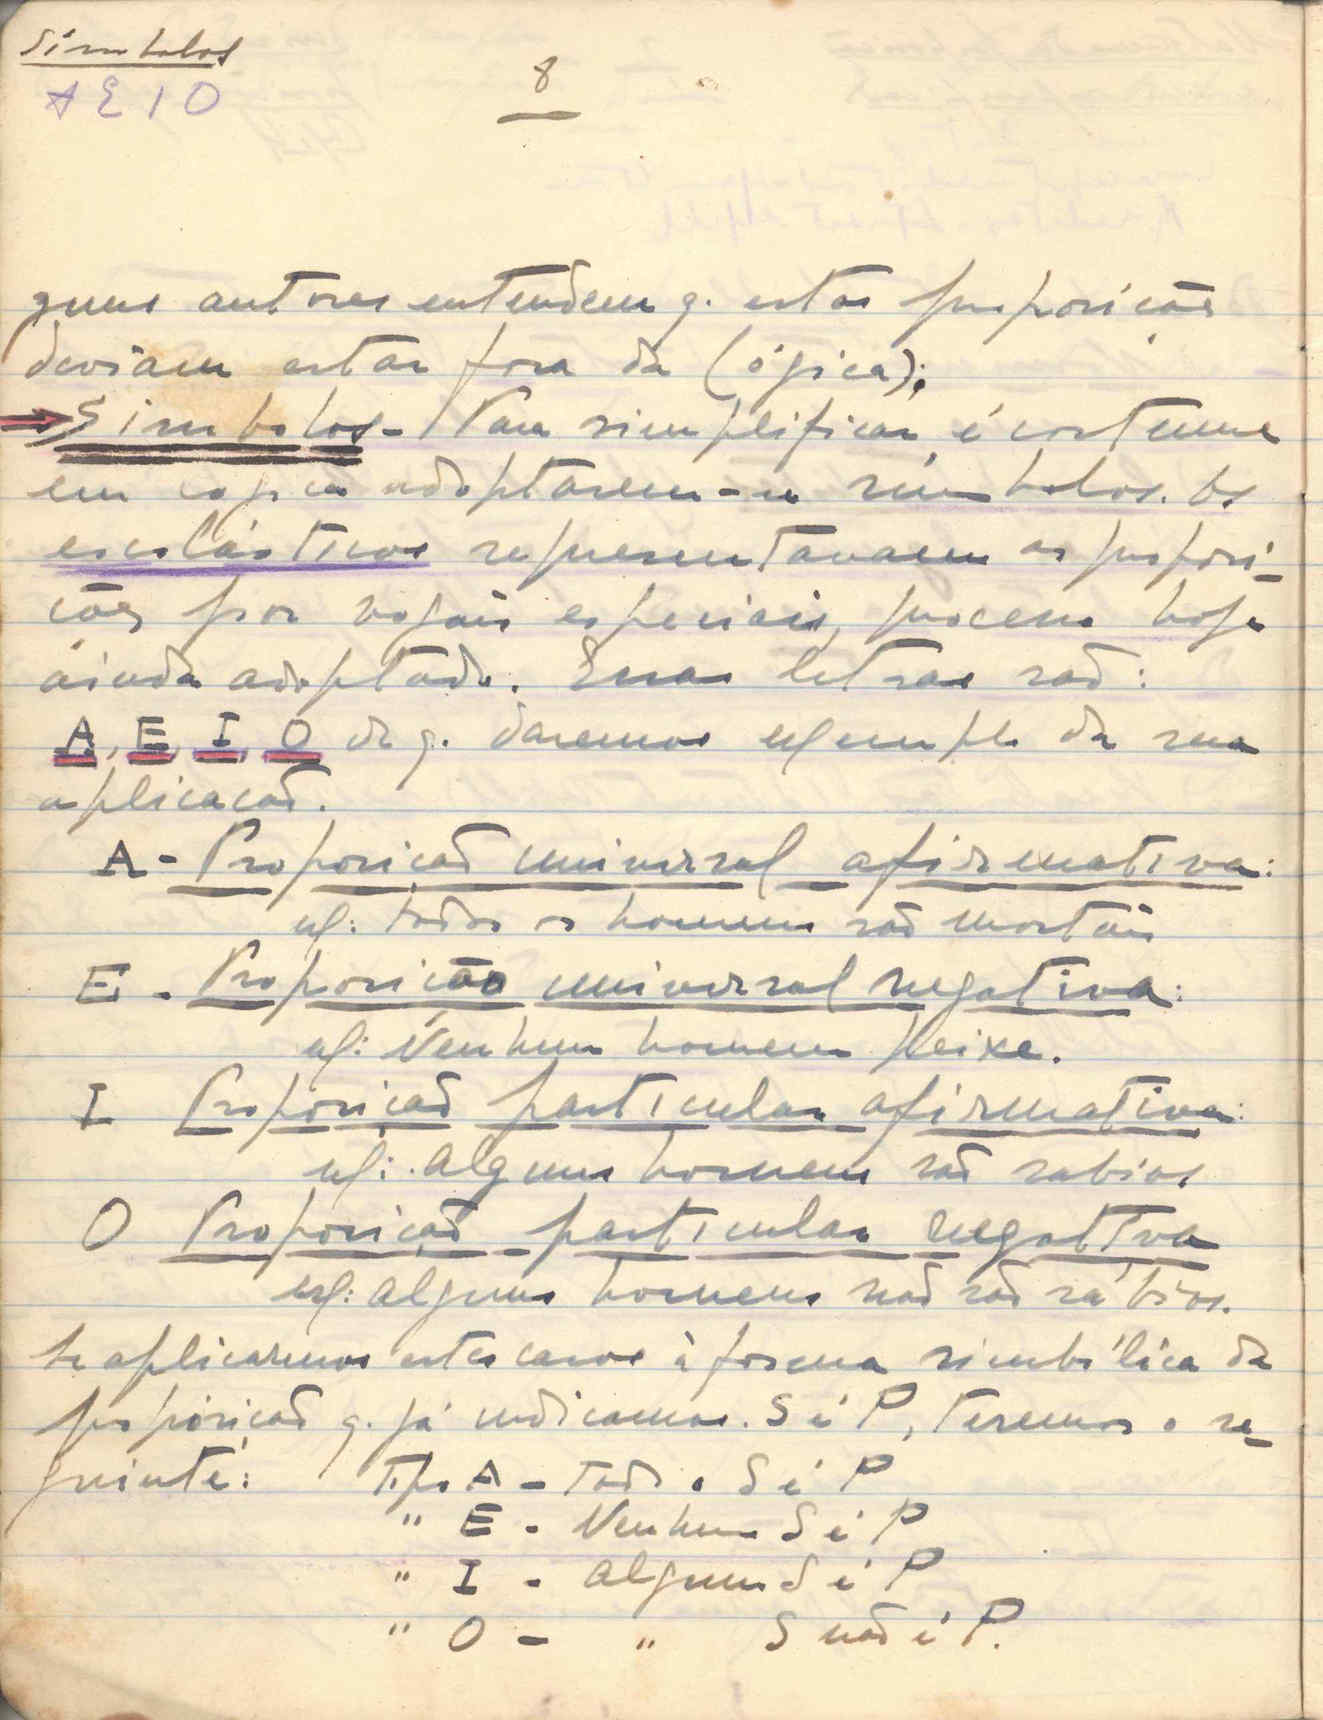 Simbolos
A E I O
8
guns autores entendem q. estas proposições
deviam estar fora da lógica);
Simbolos - Para simplificar, é costume
em logica adoptarem-se símbolos. Os
escolásticos representavam as proposi-
ções por vogais especiais, processo hoje
ainda adoptado. Essas letras são:
A, E, I, O de q. daremos exemplo da sua
aplicação.
A - Proposição universal afirmativa:
ex: todos os homens são mortais
E - Proposição universal negativa:
ex: Nenhum homem peixe.
I Proposição particular afirmativa:
ex: Alguns homens são sabios
O Proposição particular negativa
ex: Alguns homens não são sábios.
Se aplicarmos estes casos à forma simbólica da
proposição q. já indicamos. S é P, teremos o se-
guinte: Tipo A - Todo o S é P
" E - Nenhum S é P
" I - Algum S é P
" O - " S não é P.